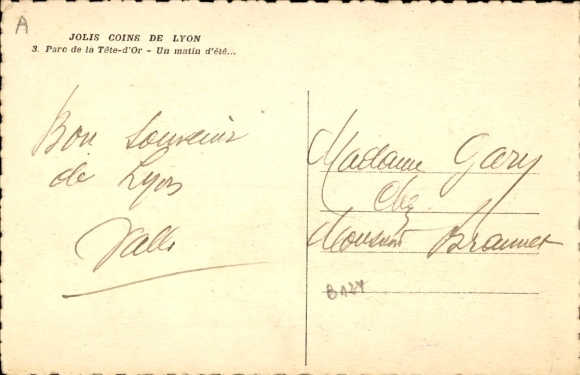 A
JOLIS COINS DE LYON
3. Parc de la Tête-d'Or - Un matin d'été...
Bon souvenir
de Lyon
Madame Gary
Chez
Monsieur Braunet
B124